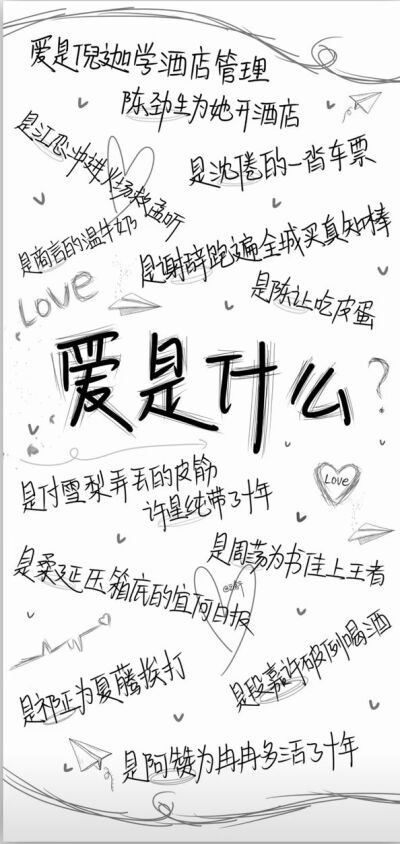 爱是倪迦学酒店管理
陈劲生为她开酒店
是江忍冲进火场救孟听
是沈倦的一沓车票
是商言的温牛奶
是谢辞跑遍全城买真知棒
是陈让吃皮蛋
Love
爱是什么?
Love
是付雪梨弄丢的皮筋
许星纯带了十年
是周荡为书佳上王者
是柔延压箱底的宜荷日报
是祁正为夏藤挨打
是段嘉许破例喝酒
是阿赞为冉冉多活了十年